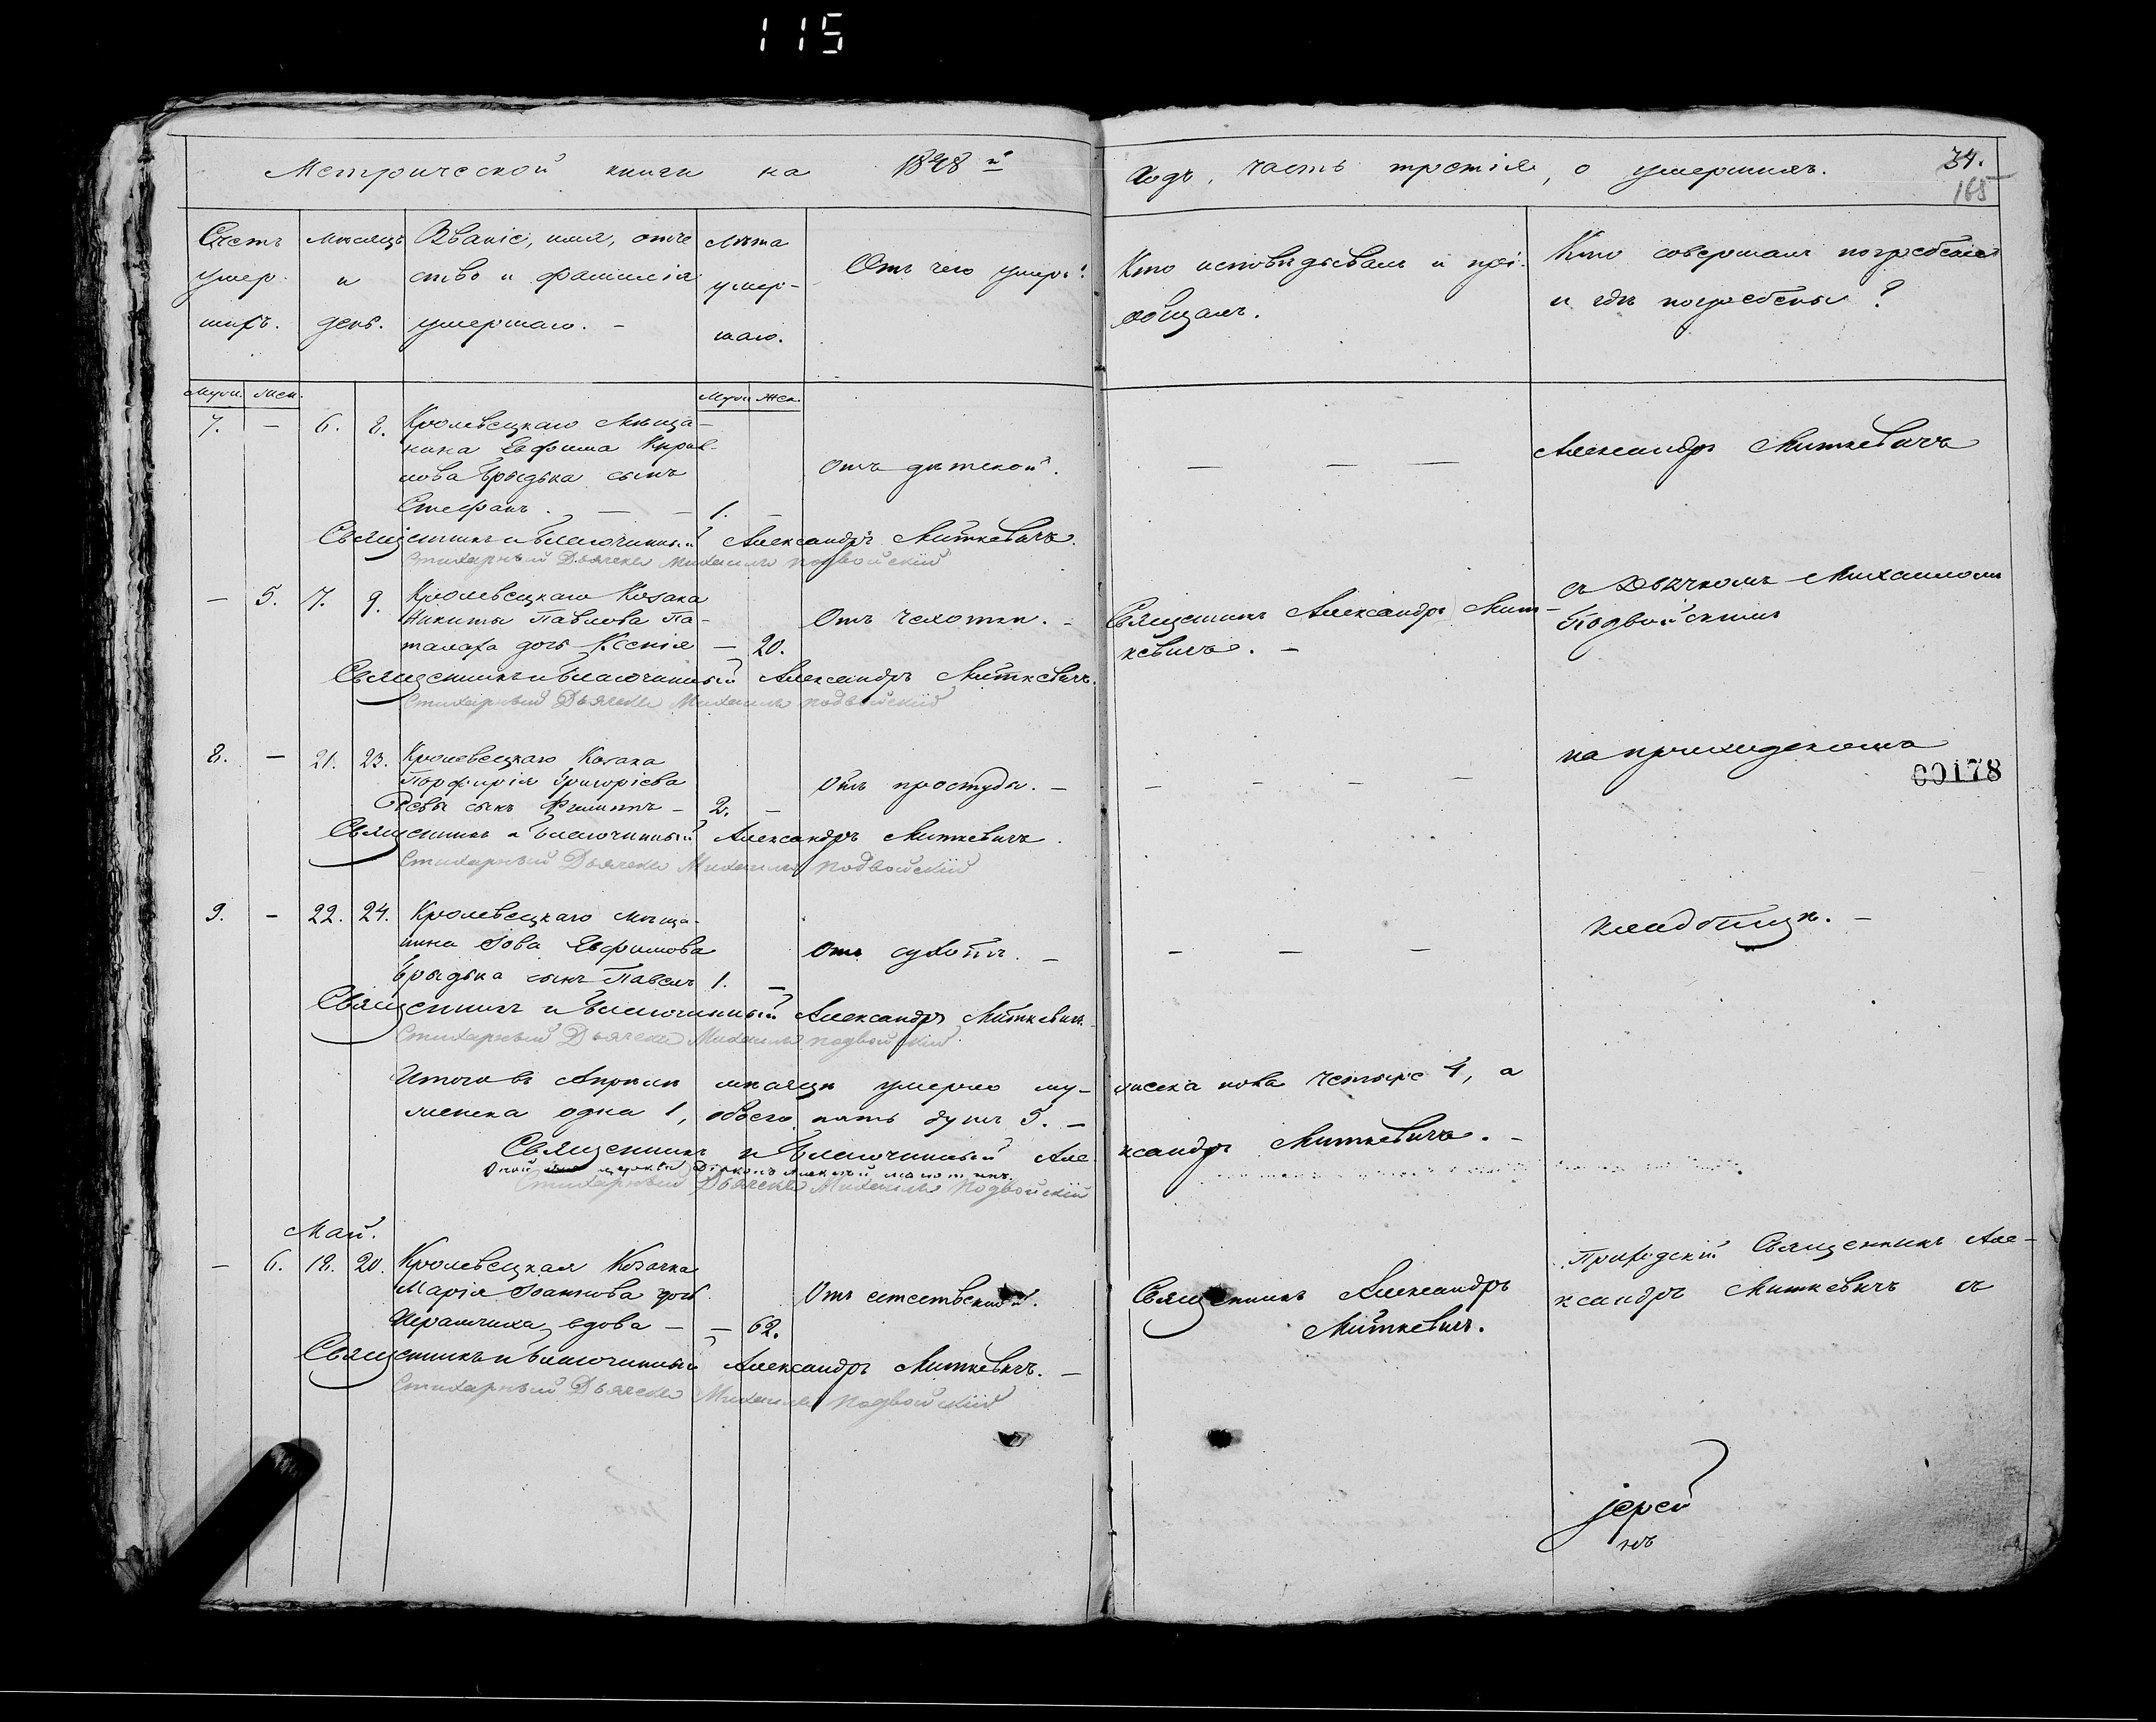 115
Метрической книги на 1848 й
Годъ, часть третія, о умершихъ. 34.
165
Счетъ умер- шихъ.
Мѣсяцъ и день.
Званіе, имя, отче- ство и фамилія умершаго. -
Лѣта умер- шаго.
Отъ чего умеръ?
Кто исповѣдывалъ и прі- общалъ.
Кто совершалъ погребеніе и гдѣ погребены?
Муж. Жен.
Муж. Жен.
7. - 6. 8. Кролевецкаго Мѣща-
нина Евфима Кирил-
лова сынъ
Стефанъ. - - 1. -
Отъ дѣтской.
- - -
Александръ Миткевичъ
Священникъ и Благочинный Александръ Миткевичъ.
Стихарный Дьячекъ Михаилъ Подвойскій
- 5. 7. 9. Кролевецкаго Козака
Никиты Павлова Па-
талаха дочь Ксенія - 20.
Отъ чахотки. -
Священникъ Александръ Мит-
кевичъ. -
съ Дьячкомъ Михаиломъ
Подвойскимъ
Священникъ и Благочинный Александръ Миткевичъ.
Стихарный Дьячекъ Михаилъ Подвойскій
8. - 21. 23. Кролевецкаго Козака
Порфирія Григоріева
сынъ Филиппъ - 2. -
Отъ простуды. -
- - - -
на приходскомъ
00178
Священникъ и Благочинный Александръ Миткевичъ.
Стихарный Дьячекъ Михаилъ Подвойскій
9. - 22. 24. Кролевецкаго мѣща-
нина Іова Евфимова
сынъ Павелъ 1. -
Отъ сухотъ. -
- - -
кладбищѣ. -
Священникъ и Благочинный Александръ Миткевичъ.
Стихарный Дьячекъ Михаилъ Подвойскій
Итого въ Апрѣлѣ мѣсяцѣ умерло му-
жеска пола четыре 4, а
женска одна 1, обоего пять душъ 5. -
Священникъ и Благочинный Але-
ксандръ Миткевичъ. -
церкви Діаконъ Алексѣй
Стихарный Дьячекъ Михаилъ Подвойскій
Май.
- 6. 18. 20. Кролевецкая Козачка
Марія Іоаннова дочь
вдова - - 62.
Отъ естественной.
Священникъ Александръ
Миткевичъ.
Приходскій Священникъ Але-
ксандръ Миткевичъ съ
Священникъ и Благочинный Александръ Миткевичъ. -
Стихарный Дьячекъ Михаилъ Подвойскій
іерей